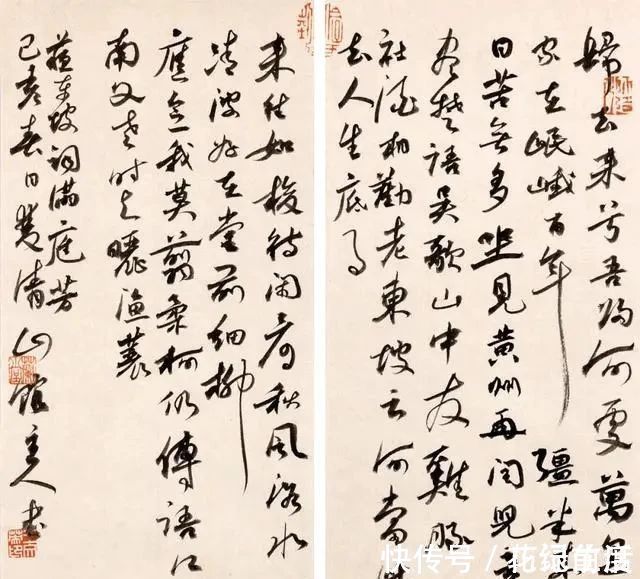 歸去来兮吾歸何處萬里
家在岷峨百年彊半来
日苦無多坐見黄州再閏兒童
尽楚語吴歌山中友雞豚
社酒相勸老東坡云何當此
去人生底事
来往如梭待闲看秋風洛水
清波好在堂前細柳
應念我莫翦柔柯仍傳語江
南父老时与曬漁蓑
蘓東坡词满庭芳
己亥春日清山館主人書
快传号 /